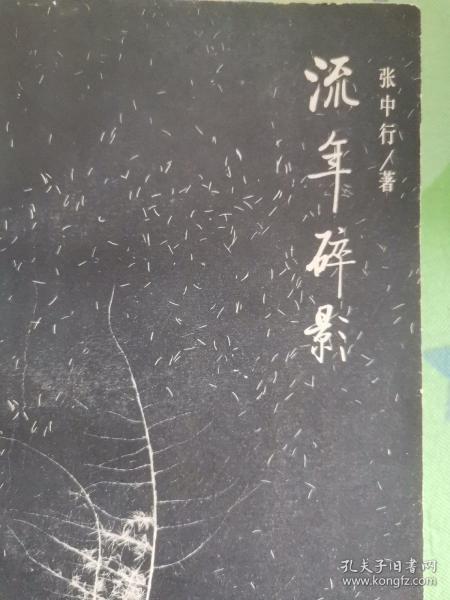 张中行/著
流年碎影
孔夫子旧书网
www.kongfz.com